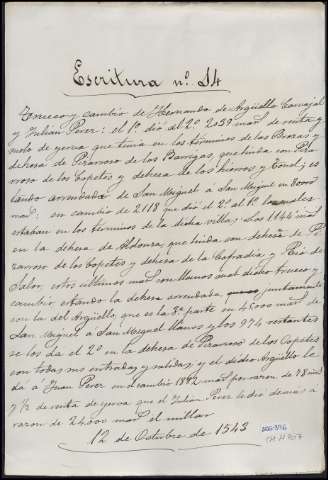 Escritura nº. 14
Trueco y cambio de Hernando de Argüello Carvajal
y Julian Perez: el 1º. dió al 2º. 2039 mrs. de renta y
suelo de yerva que tenia en los términos de las Brozas y
dehesa de Pizarroso de las Barrigas, que linda con Piza
rroso de los Copetes y dehesa de los hierros y ; es
tando arrendada de San Miguel a San Miguel en 8000
mrs: en cambio de 2118 que dió el 2º. al 1º. los cuales
estaban en los términos de la dicha villa; los 1144 mrs
en la dehesa de Aldonza, que linda con dehesa de Pi
zarroso de los Copetes y dehesa de la Cofradia y Rio de
Salor, estos ultimos mrs. con llamos mas dicho trueco y
cambio estando la dehesa arrendada, juntamente
con la del Argüello, que es la 3ª parte en 4.000 mrs. de
San Miguel a San Miguel llamos y los 974 restantes
se los da el 2º en la dehesa de Pizarroso de los Copetes
con todas sus entradas y salidas y el dicho Argüello le
da á Juan Perez en cambio 1892 mrs por razon de 78 mrs
y ½ de renta de yerva que el Julian Perez le dió demas a
razon de 24.000 mrs el millar
12 de Octubre de 1543